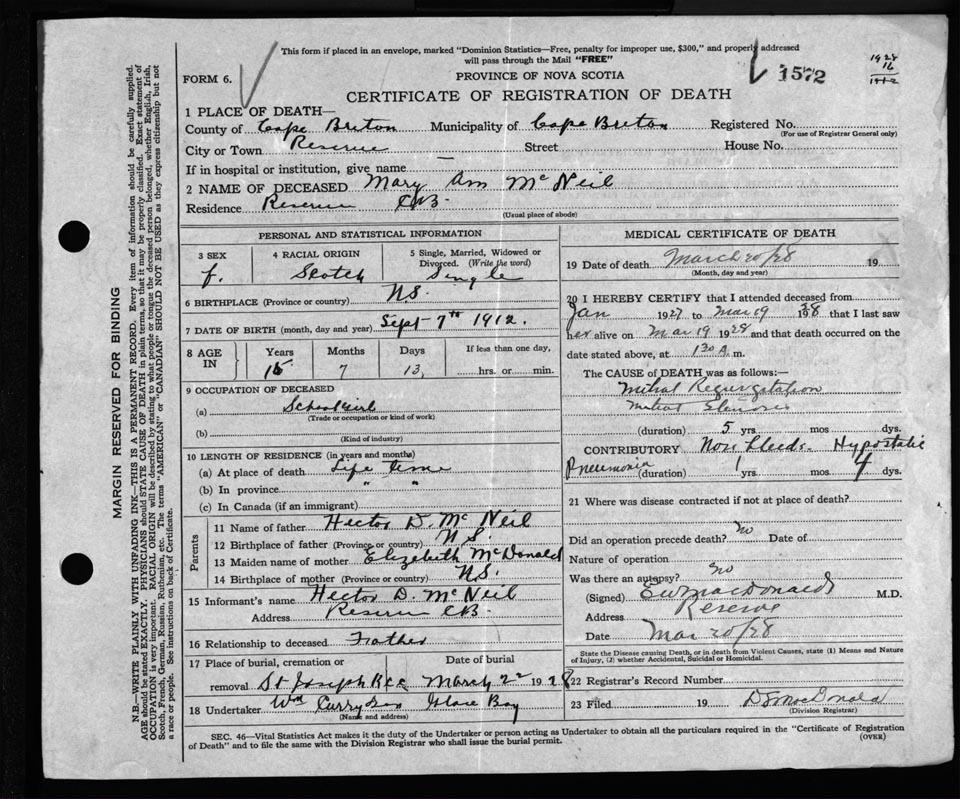 This form if placed in an envelope, marked "Dominion Statistics—Free, penalty for improper use, $300," and properly addressed
will pass through the Mail "FREE"
1572
1928
16
1912
FORM 6.
PROVINCE OF NOVA SCOTIA
CERTIFICATE OF REGISTRATION OF DEATH
1 PLACE OF DEATH—
County of Cape Breton Municipality of Cape Breton Registered No.
(For use of Registrar General only)
City or Town Reserve Street House No.
If in hospital or institution, give name —
2 NAME OF DECEASED Mary Ann McNeil
Residence Reserve C.B.
(Usual place of abode)
PERSONAL AND STATISTICAL INFORMATION
3 SEX 4 RACIAL ORIGIN 5 Single, Married, Widowed or Divorced. (Write the word)
f. Scotch Single
6 BIRTHPLACE (Province or country) N.S.
7 DATE OF BIRTH (month, day and year) Sept 7th 1912.
8 AGE IN Years Months Days If less than one day,
15 7 13, hrs. or min.
9 OCCUPATION OF DECEASED
(a) School Girl
(Trade or occupation or kind of work)
(b)
(Kind of industry)
10 LENGTH OF RESIDENCE (in years and months)
(a) At place of death Life time
(b) In province " "
(c) In Canada (if an immigrant)
Parents
11 Name of father Hector D. McNeil
12 Birthplace of father (Province or country) N.S.
13 Maiden name of mother Elizabeth McDonald
14 Birthplace of mother (Province or country) N.S.
15 Informant's name Hector D. McNeil
Address Reserve C.B.
16 Relationship to deceased Father
17 Place of burial, cremation or Date of burial
removal St Joseph Rec March 22 1928
18 Undertaker Wm Curry Son Glace Bay
(Name and address)
MEDICAL CERTIFICATE OF DEATH
19 Date of death March 20/28 19
(Month, day and year)
20 I HEREBY CERTIFY that I attended deceased from
Jan 1927 to Mar 19 1928 that I last saw
her alive on Mar 19 1928 and that death occurred on the
date stated above, at 1 30 A. m.
The CAUSE of DEATH was as follows:—
Mitral Regurgitation
Mitral Stenosis
(duration) 5 yrs. mos dys.
CONTRIBUTORY Nose bleeds. Hypostatic
Pneumonia (duration) 1 yrs. mos 4 dys.
21 Where was disease contracted if not at place of death?
Did an operation precede death? No Date of
Nature of operation
Was there an autopsy? No
(Signed) MacDonald M.D.
Address Reserve
Date Mar 20/28
State the Disease causing Death, or in death from Violent Causes, state (1) Means and Nature
of Injury, (2) whether Accidental, Suicidal or Homicidal.
22 Registrar's Record Number
23 Filed 19 MacDonald
(Division Registrar)
SEC. 46—Vital Statistics Act makes it the duty of the Undertaker or person acting as Undertaker to obtain all the particulars required in the "Certificate of Registration
of Death" and to file the same with the Division Registrar who shall issue the burial permit. (OVER)
MARGIN RESERVED FOR BINDING
N.B.—WRITE PLAINLY WITH UNFADING INK—THIS IS A PERMANENT RECORD. Every item of information should be carefully supplied.
AGE should be stated EXACTLY. PHYSICIANS should STATE CAUSE OF DEATH in plain terms, so that it may be properly classified. Exact statement of
OCCUPATION is very important. RACIAL ORIGIN will be described by stating to what people or tongue the deceased person belonged, whether English, Irish,
Scotch, French, German, Russian, Ruthenian, etc. The terms "AMERICAN" or "CANADIAN" SHOULD NOT BE USED as they express citizenship but not
a race or people. See instructions on back of Certificate.